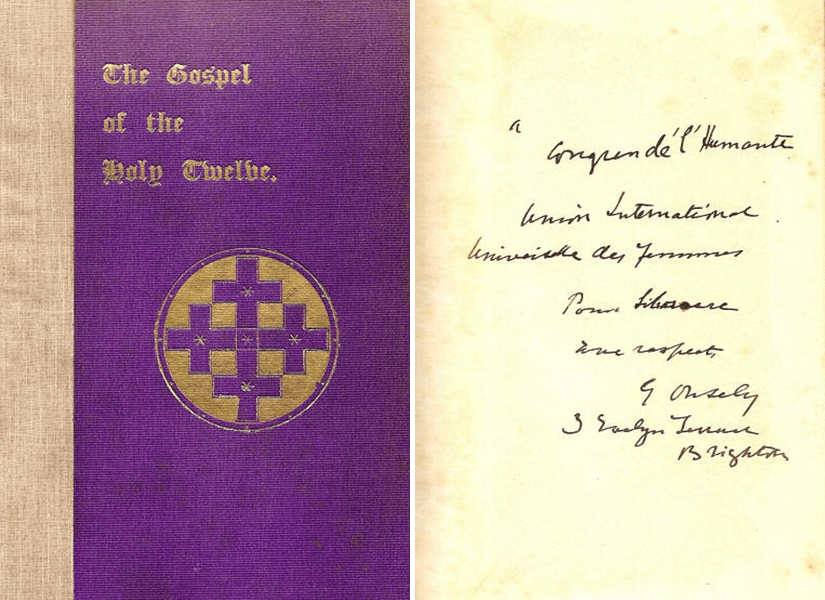 The Gospel
of the
Holy Twelve.
a
Congren de l'Humanté
Union International
des femmes
Pour
respect,
G Ouseley
3 Evelyn Terrace
Brighton